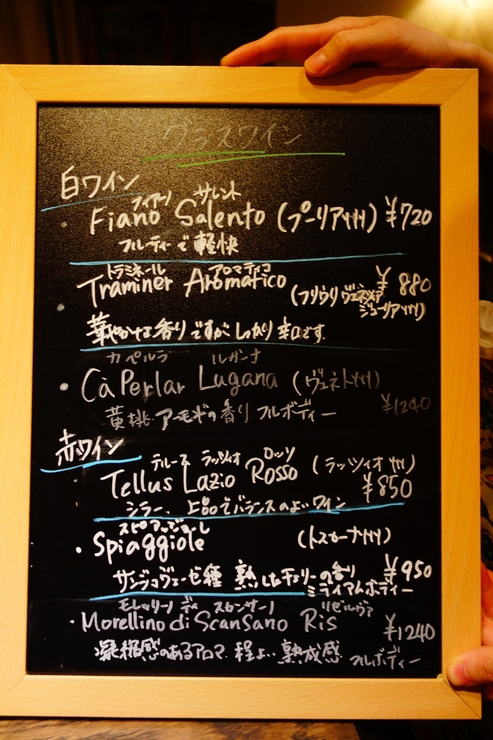 グラスワイン
白ワイン
フィアーノ サレント
Fiano Salento (プーリア州) ¥720
フルーティーで軽快
トラミネール アロマティコ
Traminer Aromatico (フリウリ ヴェネツィア ジューリア州) ¥880
華やかな香りですがしっかり辛口です。
カペルラ ルガーナ
・Cà Perlar Lugana (ヴェネト州)
黄桃、アーモンドの香り フルボディー ¥1240
赤ワイン
テルース ラッツィオ ロッソ
Tellus Lazio Rosso (ラッツィオ州)
¥850
シラー、上品でバランスのよいワイン
スピアッジョーレ
・Spiaggiole (トスカーナ州)
サンジョヴェーゼ種 熟したチェリーの香り ¥950
ミディアムボディー
モレッリーノ ディ スカンサーノ リゼルヴァ
・Morellino di Scansano Ris ¥1240
凝縮感のあるアロマ、程よい熟成感 フルボディー